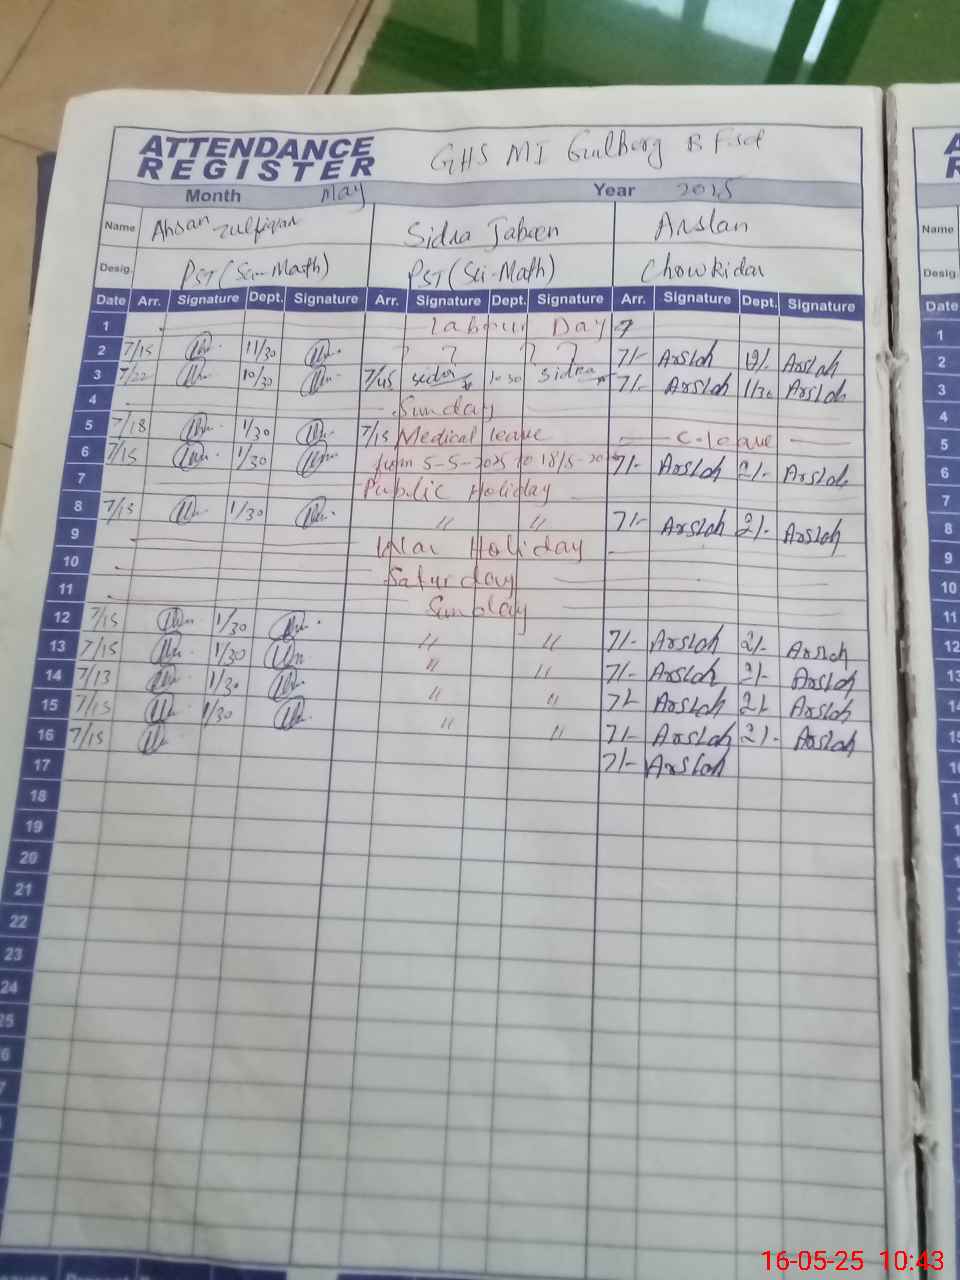 ATTENDANCE REGISTER GHS MI Gulberg B Fsd
Month May Year 2025
Name Ahsan Zulfiqar Sidra Jabeen Arslan
Desig. PST (Sci-Math) PST (Sci-Math) Chowkidar
Date Arr. Signature Dept. Signature Arr. Signature Dept. Signature Arr. Signature Dept. Signature
1 Labour Day
2 7/15 11/30 ? ? ? ? 7/- Arslah Arslah
3 7/22 10/30 7/45 sidra 10 30 Sidra 7/- Arslah 1/30 Arslah
4 Sunday
5 7/18 1/30 7/15 Medical leave C. leave
6 7/15 1/30 from 5-5-2025 to 18/5-20 7/- Arslah 2/- Arslah
7 Public Holiday
8 7/15 1/30 " " 7/- Arslah 2/- Arslah
9 War Holiday
10 Saturday
11 Sunday
12 7/15 1/30 " " 7/- Arslah 2/- Arslah
13 7/15 1/30 " " 7/- Arslah 2/- Arslah
14 7/13 1/30 " " 7/- Arslah 2/- Arslah
15 7/15 1/30 " " 7/- Arslah 2/- Arslah
16 7/15 7/- Arslah
17
18
19
20
21
22
23
24
25
6
7
8
Name
Desig
Date
1
2
3
4
5
6
7
8
9
10
11
12
13
14
15
16-05-25 10:43